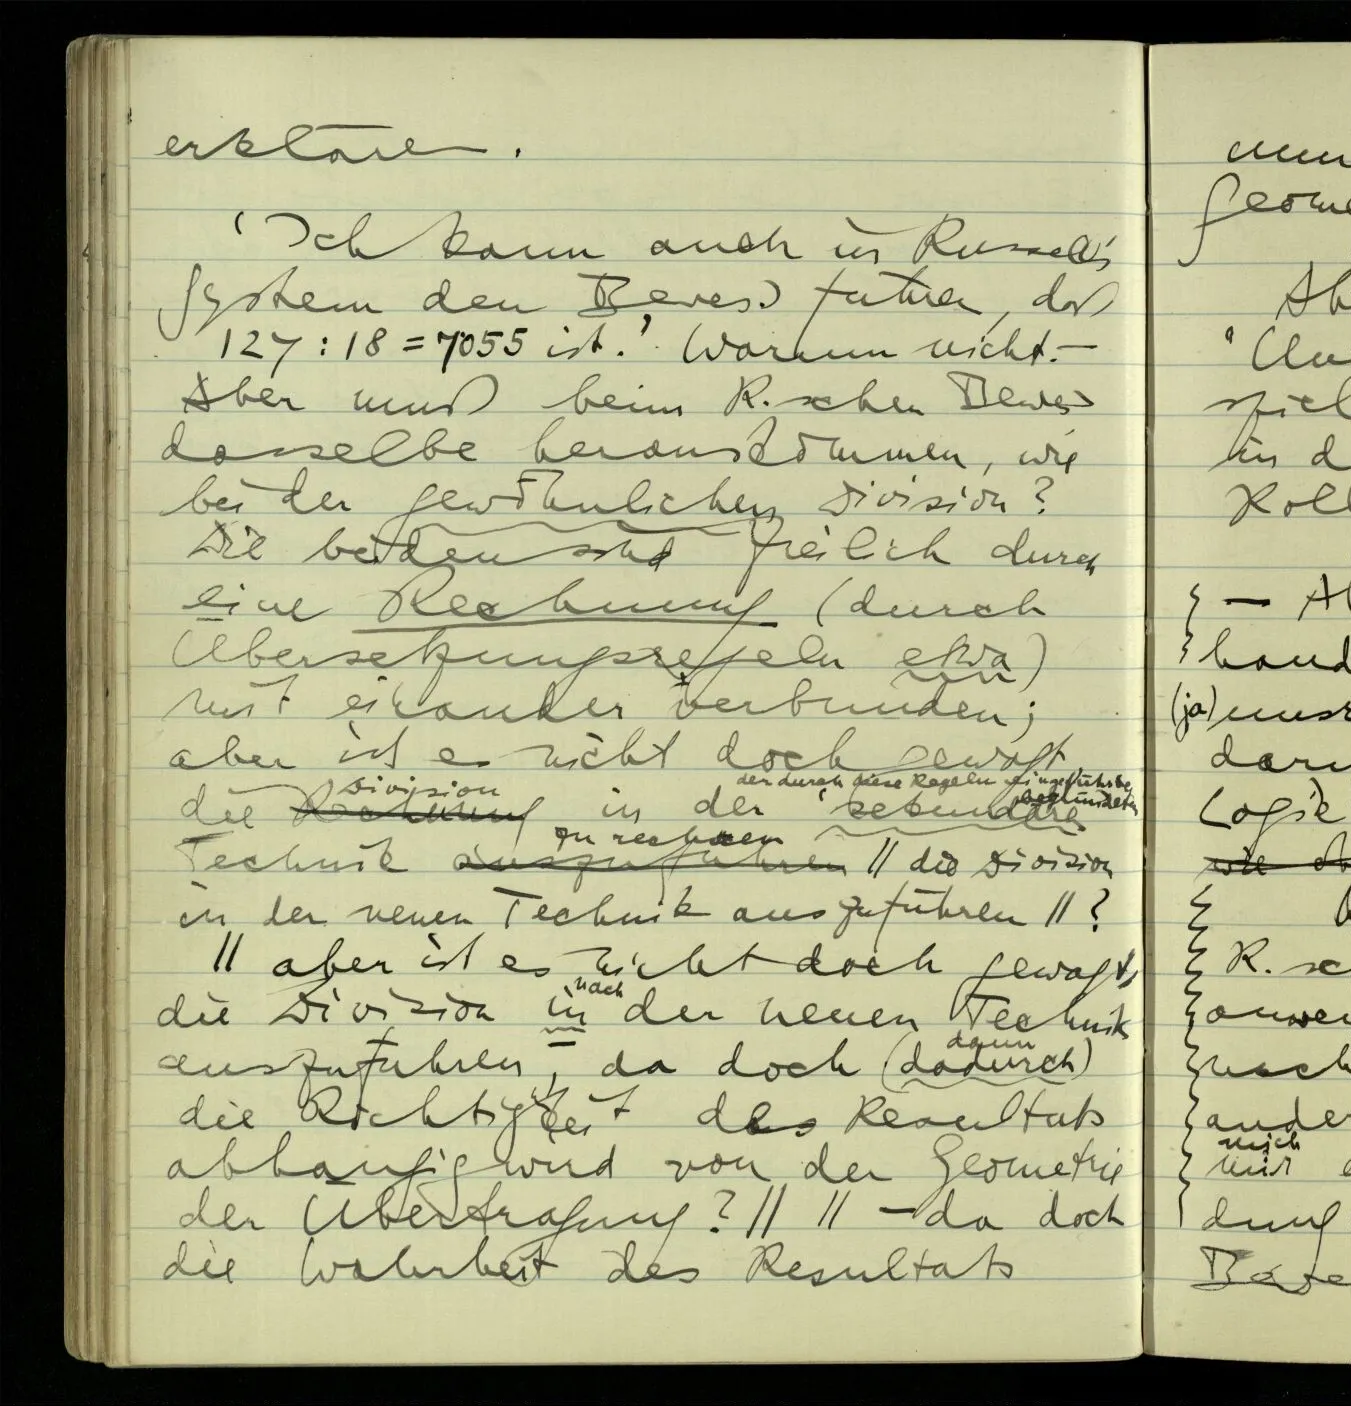 erklären.
'Ich kann auch in Russell's
System den Beweis führen, daß
127 : 18 = 7˙055 ist.' Warum nicht. –
Aber muß beim R.schen Beweis
dasselbe herauskommen, wie
bei der gewöhnlichen Division?
Die beiden sind freilich durch
eine Rechnung (durch
Übersetzungsregeln etwa)
mit einander verbunden;
aber ist es nicht doch gewagt
Division der durch diese Regeln eingeführte
die Rechnung in der sekundäre begründeten
zu rechnen
Technik auszuführen // die Division
in der neuen Technik auszuführen // ?
// aber ist es nicht doch gewagt,
nach
die Division in der neuen Technik
dann
auszuführen, da doch (dadurch)
die Richtigkeit des Resultats
abhängig wird von der Geometrie
der Übertragung? // // – da doch
die Wahrheit des Resultats
nun
geome
Ab
spiel
in d
Roll
{ — Ab
hand
(ja) unsr
daru
Logik
R. sc
anwen
nach
ander
mich
mir
dung